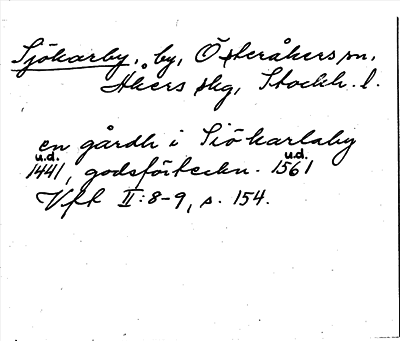 Sjökarby, by, Österåkers sn,
Åkers skg, Stockh. l.
en gårdh i Siökarlaby
u.d. u.d.
1441, godsförteckn. 1561
Vfk II:8-9, s. 154.